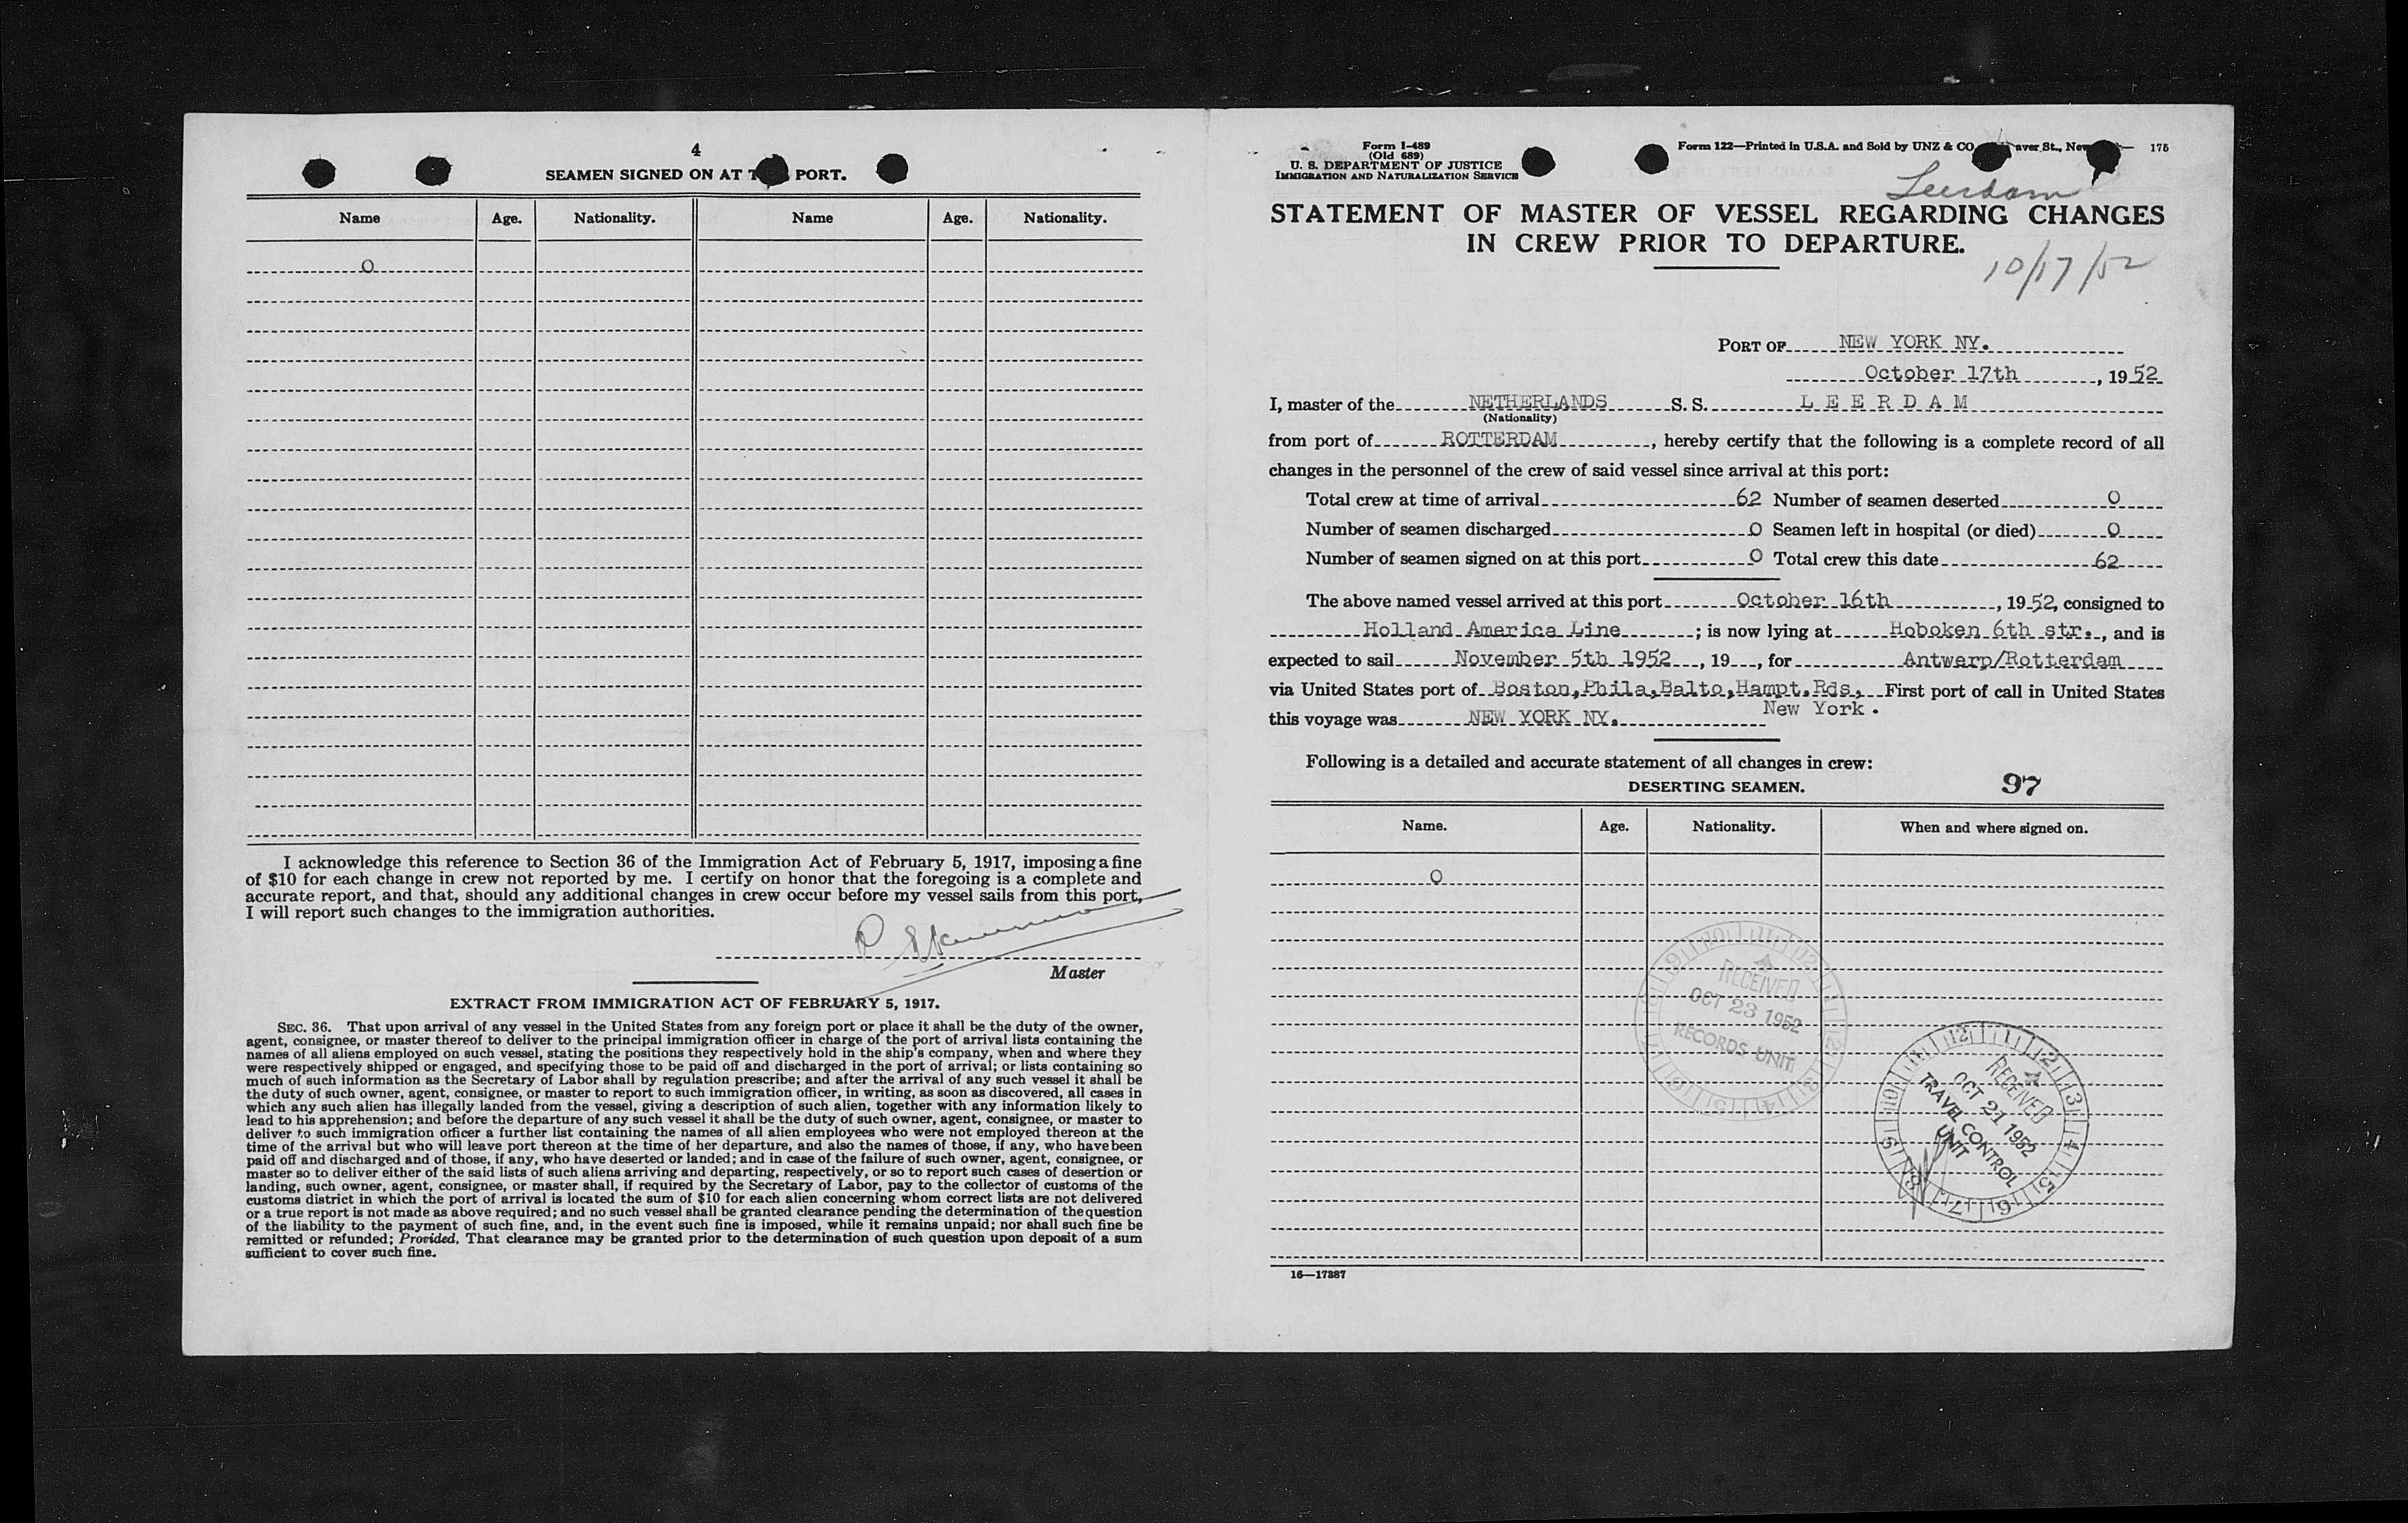 4
SEAMEN SIGNED ON AT PORT.
Name Age. Nationality. Name Age. Nationality.
O
I acknowledge this reference to Section 36 of the Immigration Act of February 5, 1917, imposing a fine
of $10 for each change in crew not reported by me. I certify on honor that the foregoing is a complete and
accurate report, and that, should any additional changes in crew occur before my vessel sails from this port,
I will report such changes to the immigration authorities.
Master
EXTRACT FROM IMMIGRATION ACT OF FEBRUARY 5, 1917.
SEC. 36. That upon arrival of any vessel in the United States from any foreign port or place it shall be the duty of the owner,
agent, consignee, or master thereof to deliver to the principal immigration officer in charge of the port of arrival lists containing the
names of all aliens employed on such vessel, stating the positions they respectively hold in the ship's company, when and where they
were respectively shipped or engaged, and specifying those to be paid off and discharged in the port of arrival; or lists containing so
much of such information as the Secretary of Labor shall by regulation prescribe; and after the arrival of any such vessel it shall be
the duty of such owner, agent, consignee, or master to report to such immigration officer, in writing, as soon as discovered, all cases in
which any such alien has illegally landed from the vessel, giving a description of such alien, together with any information likely to
lead to his apprehension; and before the departure of any such vessel it shall be the duty of such owner, agent, consignee, or master to
deliver to such immigration officer a further list containing the names of all alien employees who were not employed thereon at the
time of the arrival but who will leave port thereon at the time of her departure, and also the names of those, if any, who have been
paid off and discharged and of those, if any, who have deserted or landed; and in case of the failure of such owner, agent, consignee, or
master so to deliver either of the said lists of such aliens arriving and departing, respectively, or so to report such cases of desertion or
landing, such owner, agent, consignee, or master shall, if required by the Secretary of Labor, pay to the collector of customs of the
customs district in which the port of arrival is located the sum of $10 for each alien concerning whom correct lists are not delivered
or a true report is not made as above required; and no such vessel shall be granted clearance pending the determination of the question
of the liability to the payment of such fine, and, in the event such fine is imposed, while it remains unpaid; nor shall such fine be
remitted or refunded; Provided, That clearance may be granted prior to the determination of such question upon deposit of a sum
sufficient to cover such fine.
Form I-489
(Old 689)
U. S. DEPARTMENT OF JUSTICE
IMMIGRATION AND NATURALIZATION SERVICE
Form 122—Printed in U.S.A. and Sold by UNZ & CO aver St., New — 175
Leerdam
STATEMENT OF MASTER OF VESSEL REGARDING CHANGES
IN CREW PRIOR TO DEPARTURE.
10/17/52
PORT OF NEW YORK NY.
October 17th, 1952
I, master of the NETHERLANDS S. S. L E E R D A M
(Nationality)
from port of ROTTERDAM, hereby certify that the following is a complete record of all
changes in the personnel of the crew of said vessel since arrival at this port:
Total crew at time of arrival 62 Number of seamen deserted O
Number of seamen discharged O Seamen left in hospital (or died) O
Number of seamen signed on at this port O Total crew this date 62
The above named vessel arrived at this port October 16th, 1952, consigned to
Holland America Line; is now lying at Hoboken 6th str., and is
expected to sail November 5th 1952, 19, for Antwerp/Rotterdam
via United States port of Boston,Phila,Balto,Hampt.Rds, First port of call in United States
New York.
this voyage was NEW YORK NY.
Following is a detailed and accurate statement of all changes in crew:
DESERTING SEAMEN. 97
Name. Age. Nationality. When and where signed on.
O
RECEIVED
OCT 23 1952
RECORDS UNIT
RECEIVED
OCT 21 1952
TRAVEL CONTROL
UNIT
16—17387